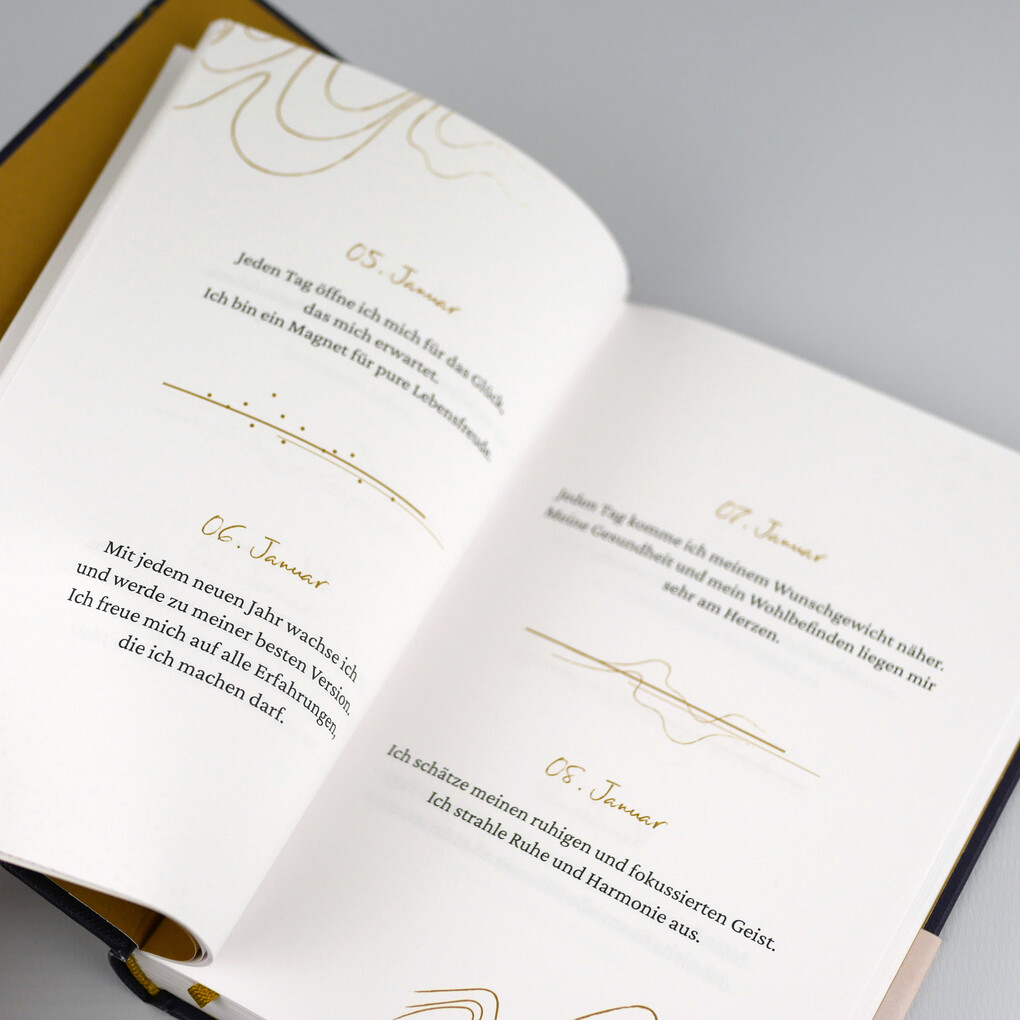 05. Januar
Jeden Tag öffne ich mich für das Glück,
das mich erwartet.
Ich bin ein Magnet für pure Lebensfreude.
06. Januar
Mit jedem neuen Jahr wachse ich
und werde zu meiner besten Version.
Ich freue mich auf alle Erfahrungen,
die ich machen darf.
07. Januar
Jeden Tag komme ich meinem Wunschgewicht näher.
Meine Gesundheit und mein Wohlbefinden liegen mir
sehr am Herzen.
08. Januar
Ich schätze meinen ruhigen und fokussierten Geist.
Ich strahle Ruhe und Harmonie aus.